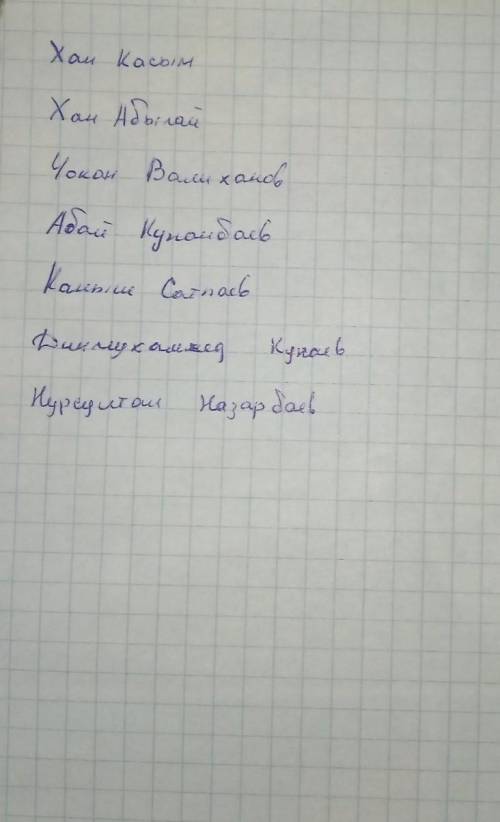 Хан Касым
Хан Абылай
Чокан Валиханов
Абай Кунанбаев
Каныш Сатпаев
Динмухаммед Кунаев
Нурсултан Назарбаев